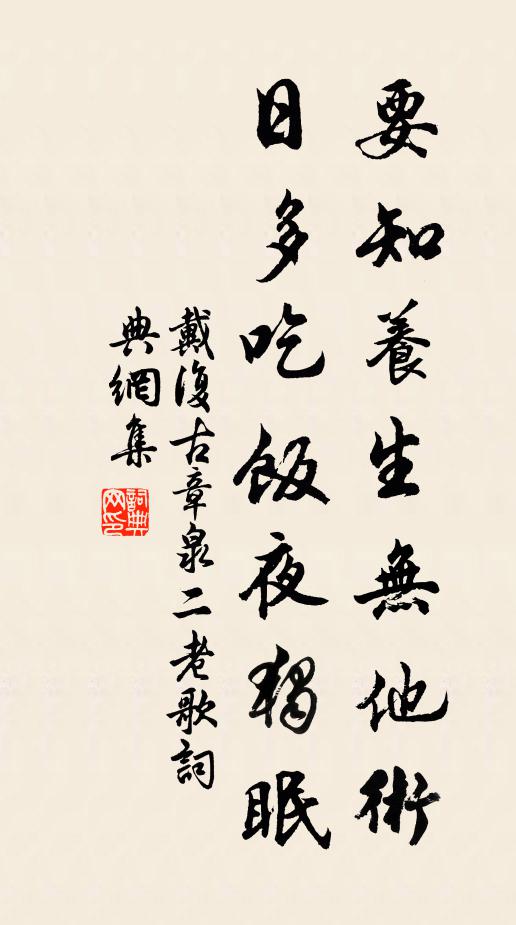 要知養生無他術
日多吃飯夜獨眠
戴復古章泉二老歌詞
典網集
詞典網印